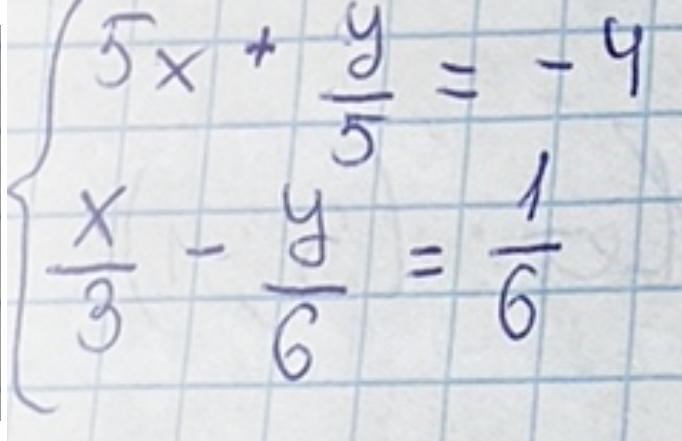 5x + y/5 = -4
x/3 - y/6 = 1/6